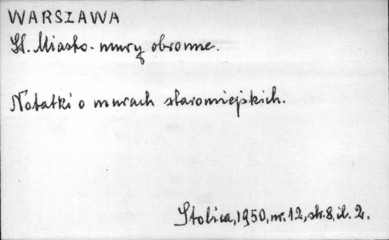 WARSZAWA
St. Miasto - mury obronne.
Notatki o murach staromiejskich.
Stolica, 1950, nr. 12, str. 8, il. 2.